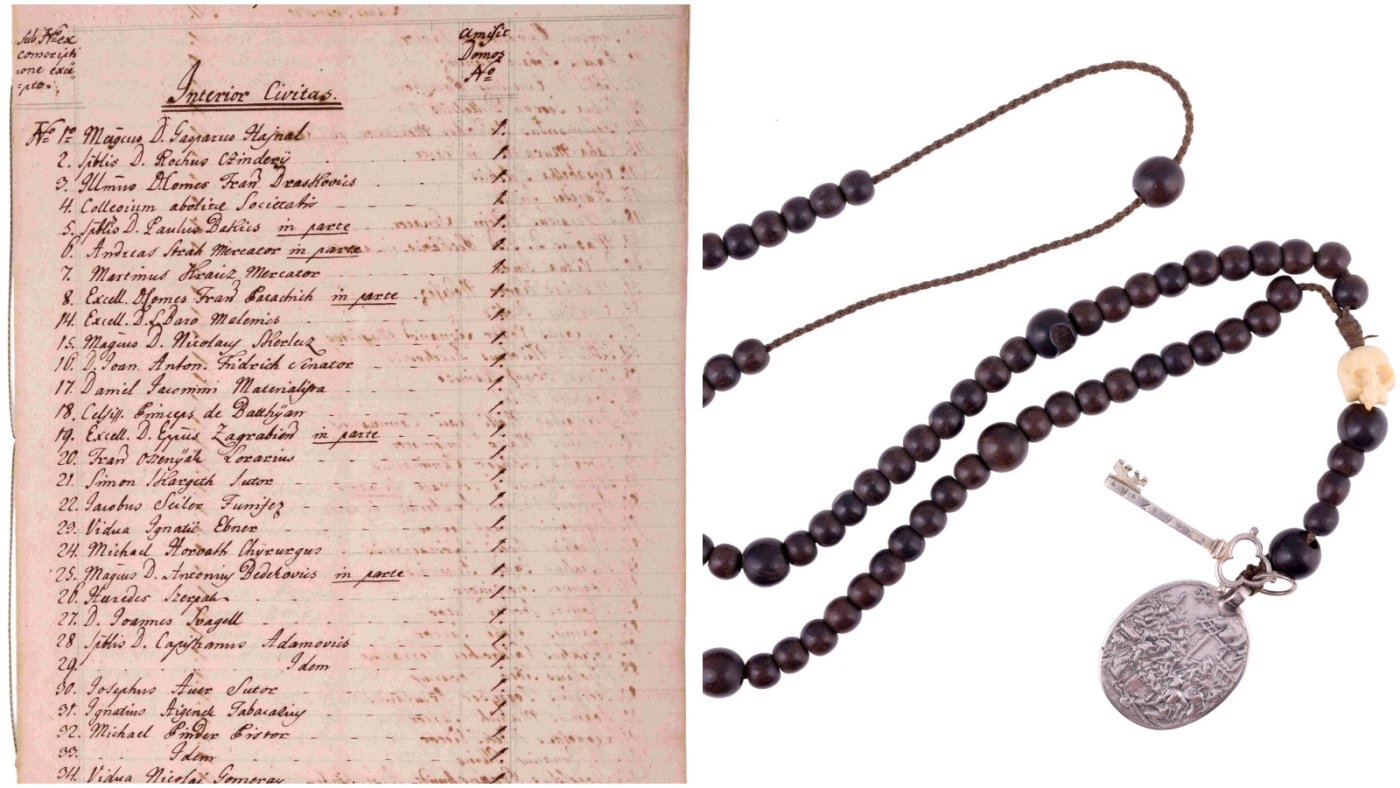 Sub Nro ex
conscripti
one exce
pto.
Amisit
Domos
No
Interior Civitas.
No 1o Magcus D. Gasparus Hajnal 1.
2. Spblis D. Rochus Czinderÿ 1.
3. Illmus D Comes Fran Draskovics 1.
4. Collegium abolitae Societatis 1.
5. Spblis D. Paulus Bakics in parte 1.
6. Andreas Strah Mercator in parte 1.
7. Martinus Krauz Mercator 1.
8. Excell. D Comes Fran Patachich in parte 1.
14. Excell. D. L. Baro Malenics 1.
15. Magcus D. Nicolaus Skerlecz 1.
16. D. Joan. Anton. Fridrich Senator 1.
17. Daniel Iacomini Materialista 1.
18. Celsiss. Princeps de Batthÿan 1.
19. Excell. D. Eppus Zagrabien in parte 1.
20. Fran Lorarius 1.
21. Simon Sutor 1.
22. Jacobus Seiler Funifex 1.
23. Vidua Ignatii Ebner 1.
24. Michael Horvath Chÿrurgus 1.
25. Magcus D. Antonius Bedekovics in parte 1.
26. Haeredes 1.
27. D. Joannes Svagell 1.
28 Spblis D. Capistranus Adamovics 1.
29. Idem 1.
30. Josephus Auer Sutor 1.
31. Ignatius Aigende Tabacarius 1.
32. Michael Pinder Pistor 1.
33. Idem 1.
34. Vidua Nicolai Gomeray 1.